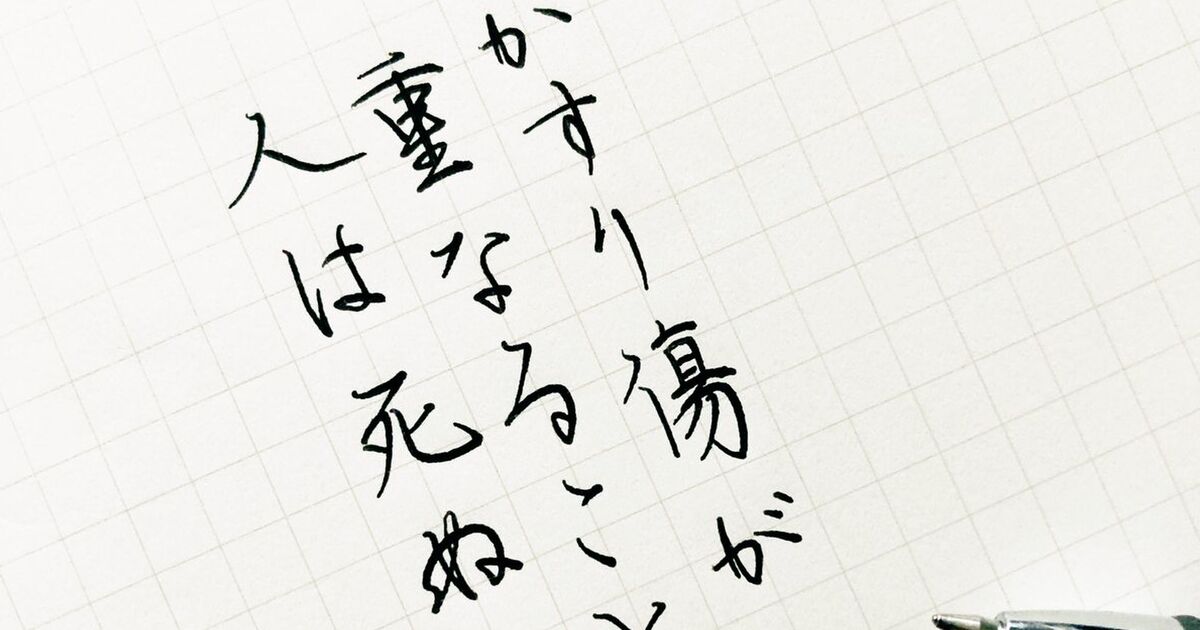 かすり傷が
重なること
人は死ぬ